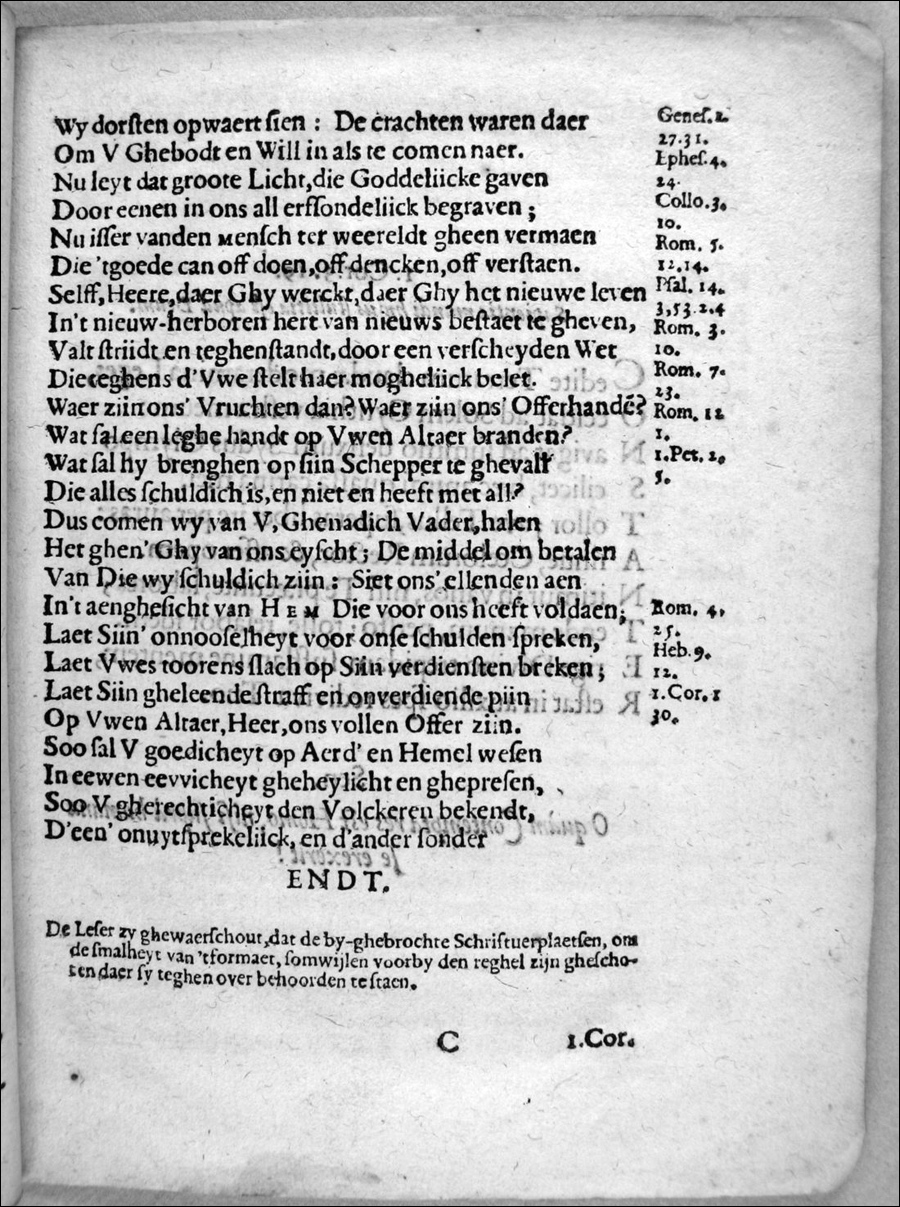 Wy dorſten opwaert ſien : De crachten waren daer
Om V Ghebodt en Will in als te comen naer.
Nu leyt dat groote Licht,die Goddeliicke gaven
Door eenen in ons all erfſondeliick begraven ;
Nu iſſer vanden Menſch ter weereldt gheen vermaen
Die 'tgoede can off doen,off dencken,off verſtaen.
Selff,Heere,daer Ghy werckt,daer Ghy het nieuwe leven
In't nieuw-herboren hert van nieuws beſtaet te gheven,
Valt ſtriidt en teghenſtandt,door een verſcheyden Wet
Die teghens d'Vwe ſtelt haer mogheliick belet.
Waer ziin ons' Vruchten dan? Waer ziin ons' Offerhandē?
Wat ſal een leghe handt op Vwen Altaer branden?
Wat ſal hy brenghen op ſiin Schepper te ghevall
Die alles ſchuldich is,en niet en heeft met all?
Dus comen wy van V,Ghenadich Vader,halen
Het ghen' Ghy van ons eyſcht ; De middel om betalen
Van Die wy ſchuldich ziin : Siet ons' ellenden aen
In't aengheſicht van HEM Die voor ons heeft voldaen;
Laet Siin' onnooſelheyt voor onſe ſchulden ſpreken,
Laet Vwes toorens ſlach op Siin verdienſten breken ;
Laet Siin gheleende ſtraff en onverdiende piin
Op Vwen Altaer,Heer,ons vollen Offer ziin.
Soo ſal V goedicheyt op Aerd' en Hemel weſen
In eewen eevvicheyt gheheylicht en ghepreſen,
Soo V gherechticheyt den Volckeren bekendt,
D'een' onuytſprekeliick, en d'ander ſonder
ENDT.
Geneſ.1.
27.31.
Epheſ.4.
24.
Collo.3.
10.
Rom. 5.
12.14.
Pſal. 14.
3,53.2.4
Rom. 3.
10.
Rom. 7.
23.
Rom. 12
1.
1.Pet. 2.
5.
Rom. 4.
25.
Heb.9.
12.
1.Cor.1
30.
De Leſer zy ghewaerſchout,dat de by-ghebrochte Schriftuerplaetſen, om
de ſmalheyt van 'tformaet, ſomwijlen voorby den reghel zijn gheſcho-
ten daer ſy teghen over behoorden te ſtaen.
C 1.Cor.